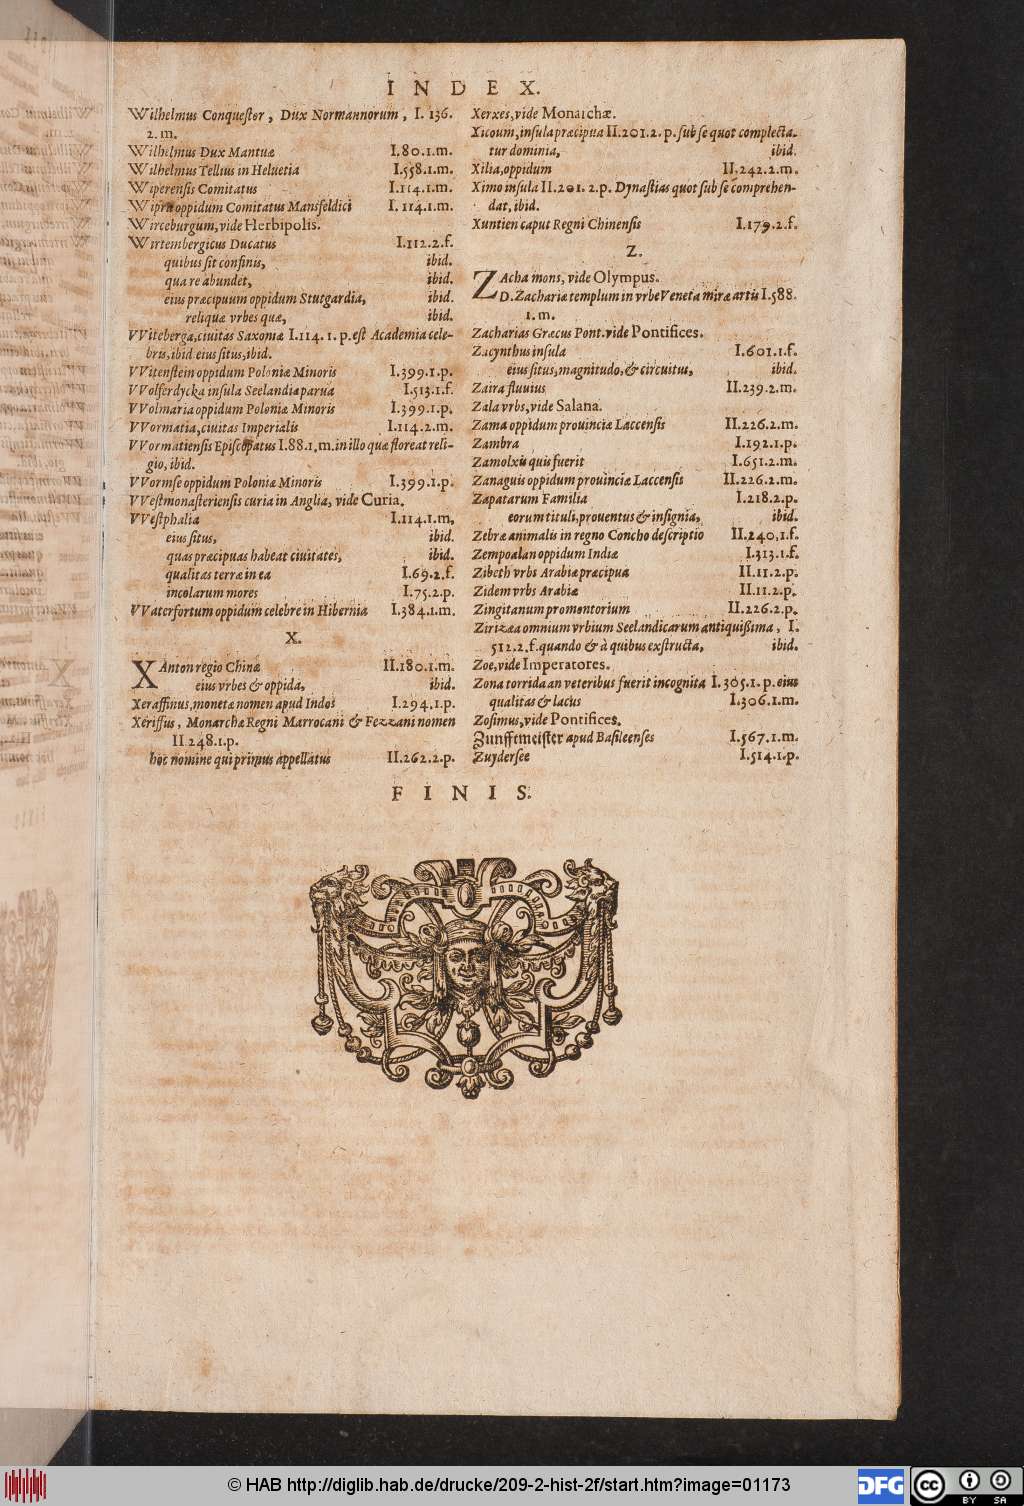 INDEX.
Wilhelmus Conquestor, Dux Normannorum, I. 136.
2. m.
Wilhelmus Dux Mantuæ I.80.1.m.
Wilhelmus Tellius in Heluetia I.558.1.m.
Wiperensis Comitatus I.114.1.m.
Wipra oppidum Comitatus Mansfeldici I. 114.1.m.
Wirceburgum, vide Herbipolis.
Wirtembergicus Ducatus I.112.2.f.
quibus sit confinis, ibid.
qua re abundet, ibid.
eius præcipuum oppidum Stutgardia, ibid.
reliquæ vrbes quæ, ibid.
VViteberga, ciuitas Saxoniæ I.114. 1. p. est Academia cele-
bris, ibid eius situs, ibid.
VVitenstein oppidum Poloniæ Minoris I.399.1.p.
VVolferdycka insula Seelandia parua I.513.1.f.
VVolmaria oppidum Poloniæ Minoris I.399.1.p.
VVormatia, ciuitas Imperialis I.114.2.m.
VVormatiensis Episcopatus I.88.1.m. in illo quæ floreat reli-
gio, ibid.
VVormse oppidum Poloniæ Minoris I.399.1.p.
VVestmonasteriensis curia in Anglia, vide Curia.
VVestphalia I.114.1.m.
eius situs, ibid.
quas præcipuas habeat ciuitates, ibid.
qualitas terræ in ea I.69.2.f.
incolarum mores I.75.2.p.
VVaterfortum oppidum celebre in Hibernia I.384.1.m.
X.
XAnton regio Chinæ II.180.1.m.
eius vrbes & oppida, ibid.
Xeraffinus, monetæ nomen apud Indos I.294.1.p.
Xeriffus, Monarchæ Regni Marrocani & Fezzani nomen
II 248.1.p.
hoc nomine qui primus appellatus II.262.2.p.
Xerxes, vide Monarchæ.
Xicoum, insula præcipua II.201.2. p. sub se quot complecta-
tur dominia, ibid.
Xilia, oppidum II.242.2.m.
Ximo insula II.201. 2.p. Dynastias quot sub se comprehen-
dat, ibid.
Xuntien caput Regni Chinensis I.179.2.f.
Z.
ZAcha mons, vide Olympus.
D. Zachariæ templum in vrbe Veneta miræ artis I.588.
1. m.
Zacharias Græcus Pont. vide Pontifices.
Zacynthus insula I.601.1.f.
eius situs, magnitudo, & circuitus, ibid.
Zaira fluuius II.239.2.m.
Zala vrbs, vide Salana.
Zama oppidum prouinciæ Laccensis II.226.2.m.
Zambra I.192.1.p.
Zamolxis quis fuerit I.651.2.m.
Zanaguis oppidum prouinciæ Laccensis II.226.2.m.
Zapatarum Familia I.218.2.p.
eorum tituli, prouentus & insignia, ibid.
Zebræ animalis in regno Concho descriptio II.240.1.f.
Zempoalan oppidum Indiæ I.313.1.f.
Zibeth vrbs Arabiæ præcipua II.11.2.p.
Zidem vrbs Arabiæ II.11.2.p.
Zingitanum promontorium II.226.2.p.
Zirizæa omnium vrbium Seelandicarum antiquißima, I.
512.2.f. quando & à quibus exstructa, ibid.
Zoe, vide Imperatores.
Zona torrida an veteribus fuerit incognita I.305.1.p. eius
qualitas & lacus I.306.1.m.
Zosimus, vide Pontifices.
Zunfftmeister apud Basileenses I.567.1.m.
Zuydersee I.514.1.p.
FINIS.
© HAB http://diglib.hab.de/drucke/209-2-hist-2f/start.htm?image=01173
DFG
cc
BY SA